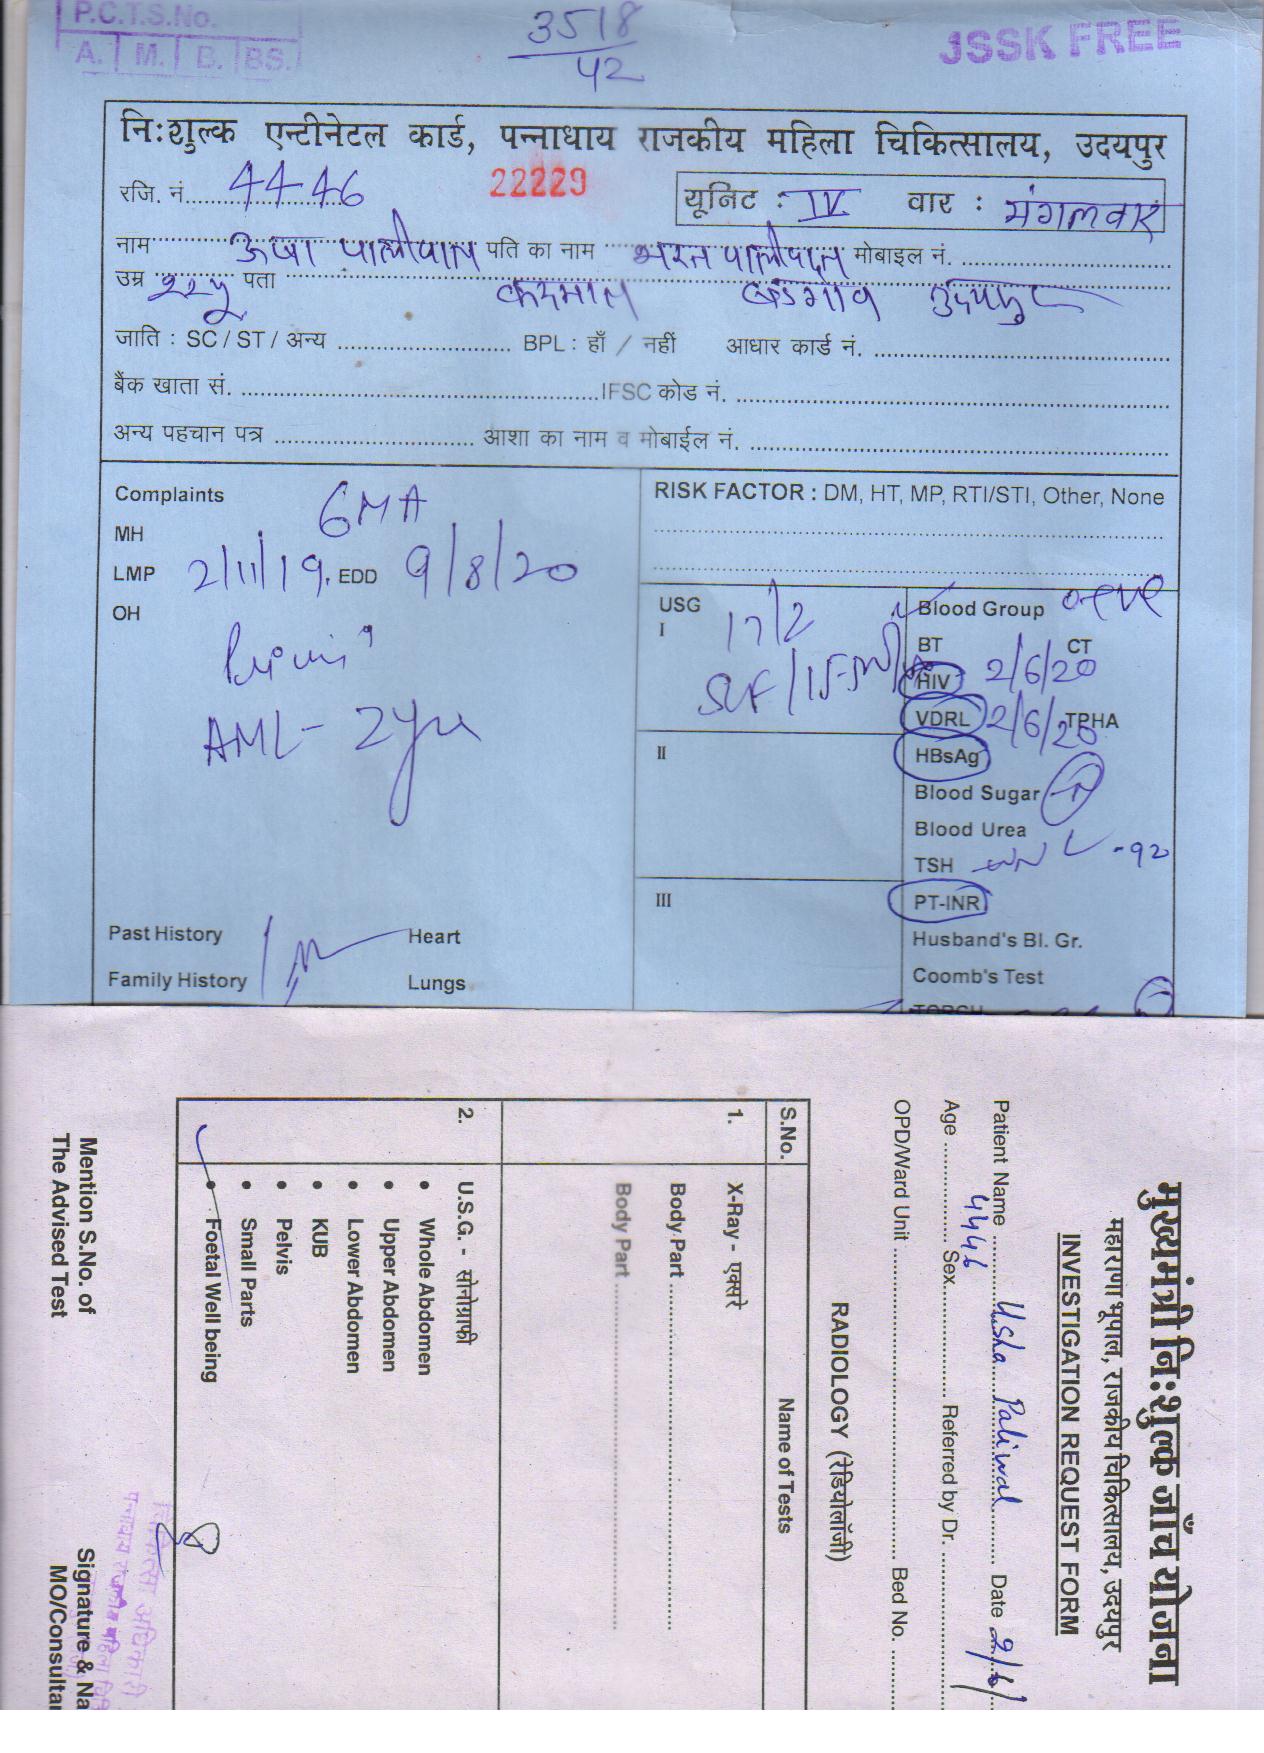 P.C.T.S.No.
A. M. B. BS.
3518
42
JSSK FREE
नि:शुल्क एन्टीनेटल कार्ड, पन्नाधाय राजकीय महिला चिकित्सालय, उदयपुर
रजि. नं. 4446 22229 यूनिट : IV वार : मंगलवार
नाम ऊषा पालीवाल पति का नाम भरत पालीवाल मोबाइल नं.
उम्र 22y पता उदयपुर
जाति : SC / ST / अन्य BPL : हाँ / नहीं आधार कार्ड नं.
बैंक खाता सं. IFSC कोड नं.
अन्य पहचान पत्र आशा का नाम व मोबाईल नं.
Complaints 6MA
MH
LMP 2/11/19, EDD 9/8/20
OH
Primi
AML- 2yr
Past History Heart
Family History Lungs
RISK FACTOR : DM, HT, MP, RTI/STI, Other, None
USG
I 17/2
II
III
Blood Group O+eve
BT CT
HIV 2/6/20
VDRL 2/6/20 TPHA
HBsAg
Blood Sugar
Blood Urea
TSH -92
PT-INR
Husband's Bl. Gr.
Coomb's Test
TORCH
मुख्यमंत्री नि:शुल्क जाँच योजना
महाराणा भूपाल, राजकीय चिकित्सालय, उदयपुर
INVESTIGATION REQUEST FORM
Patient Name Usha Paliwal Date 2/6/
4446
Age Sex Referred by Dr.
OPD/Ward Unit Bed No.
RADIOLOGY (रेडियोलॉजी)
S.No. Name of Tests
1. X-Ray - एक्सरे
Body Part
Body Part
2. U.S.G. - सोनोग्राफी
• Whole Abdomen
• Upper Abdomen
• Lower Abdomen
• KUB
• Pelvis
• Small Parts
• Foetal Well being
Mention S.No. of Signature & Na
The Advised Test MO/Consultan
चिकित्सा अधिकारी